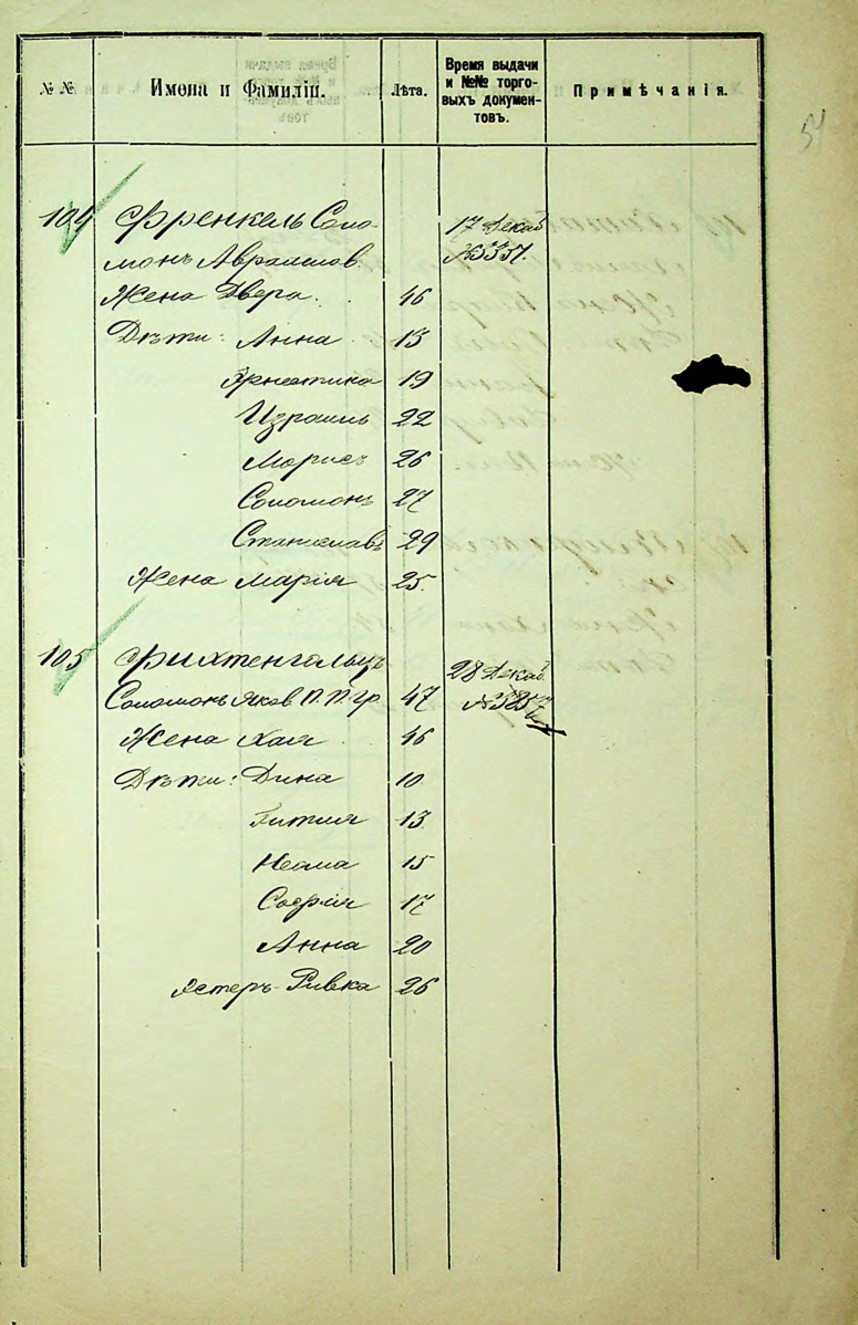 № № Имена и Фамиліи. Лѣта. Время выдачи и №№ торговыхъ документовъ. Примѣчанія.
54
104 Френкель Соло- 17 Декаб
монъ Авраамов. №3351.
Жена Двера. 46
Дѣти: Анна 15
Эрнестина 19
Израиль 22
Морисъ 26
Соломонъ 27
Станиславъ 29
Жена Марія 25.
105 Фихтенгольцъ 28 Декаб.
Соломонъ Яков. П. П. Гр. 47
Жена Хая 46
Дѣти: Дина 10
Гитля 13
Неама 15
Софія 17
Анна 20
Эстеръ-Ривка 26